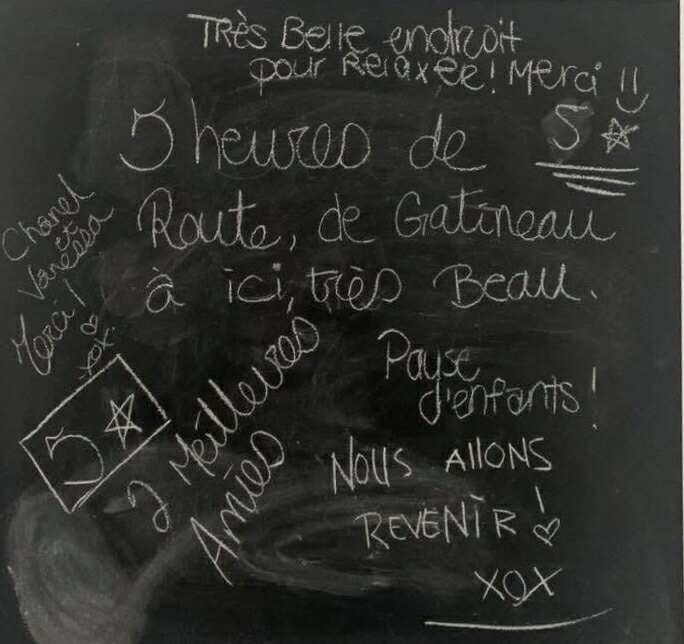 Très Belle endroit
pour Relaxée! Merci !!
5 heures de
5 ☆
Route, de Gatineau
à ici, très Beau.
Chanel
et
Vanessa
Merci! ♡
xox.
5 ☆
2 Meilleures
Amies
Payse
d'enfants!
NOUS ALLONS
REVENIR! ♡
XOX